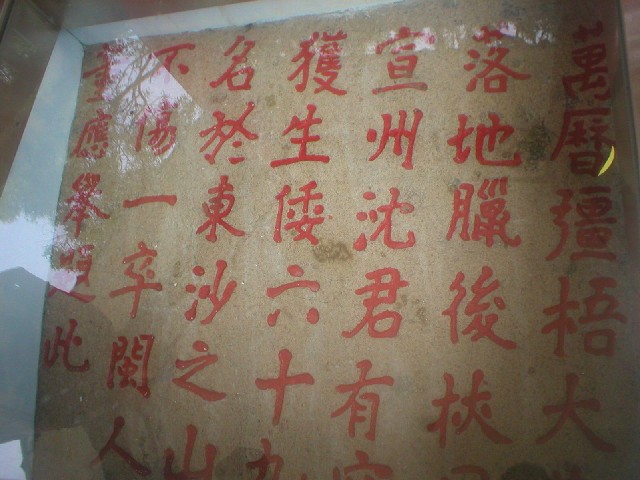 萬曆彊梧大
落地臘後挾
宣州沈君有容
獲生倭六十九
名於東沙之山
不傷一卒閩人
董應舉題此